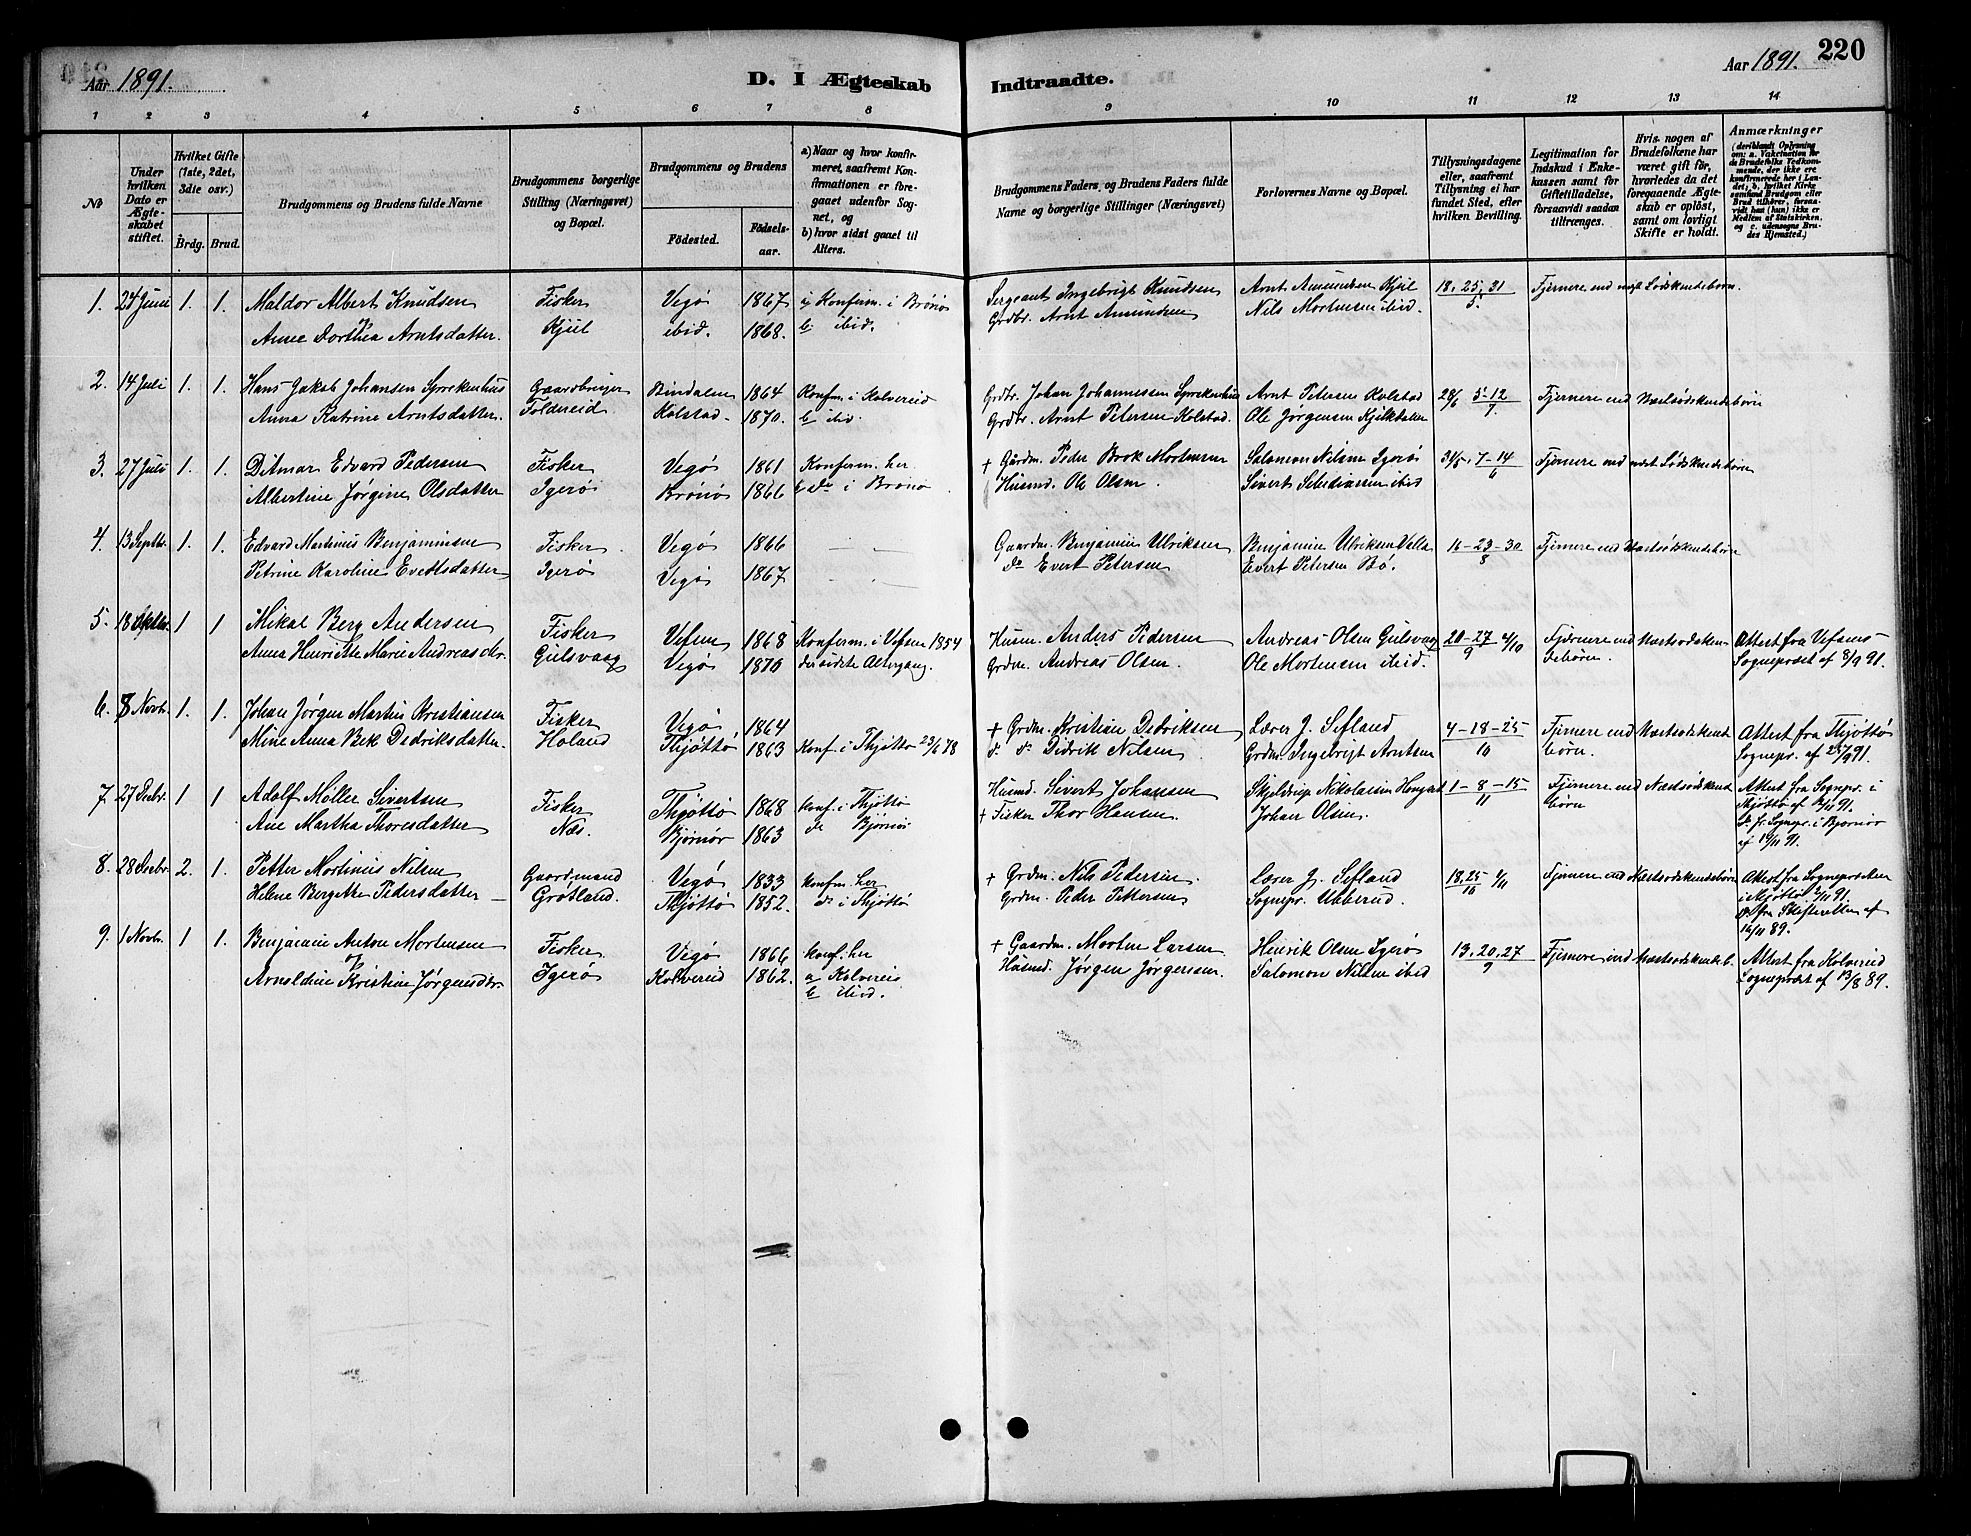 Aar 1891.
D. I Ægteskab Indtraadte.
Aar 1891.
220
1 2 3 4 5 6 7 8 9 10 11 12 13 14
No
Under hvilken Dato er Ægteskabet stiftet.
Hvilket Gifte (1ste, 2det, 3die osv.)
Brdg. Brud.
Brudgommens og Brudens fulde Navne
Brudgommens borgerlige Stilling (Næringsvei) og Bopæl.
Brudgommens og Brudens
Födested.
Födselsaar.
a) Naar og hvor konfirmeret, saafremt Konfirmationen er foregaaet udenfor Sognet, og
b) hvor sidst gaaet til Alters.
Brudgommens Faders og Brudens Faders fulde Navne og borgerlige Stillinger (Næringsvei)
Forlovernes Navne og Bopæl.
Tillysningsdagene eller, saafremt Tillysning ei har fundet Sted, efter hvilken Bevilling.
Legitimation for Indskud i Enkekassen samt for Giftetilladelse, forsaavidt saadan tiltrænges.
Hvis nogen af Brudefolkene har været gift för, hvorledes da det foregaaende Ægteskab er oplöst, samt om lovligt Skifte er holdt.
Anmærkninger (deriblandt Oplysning om: a. Vakcination for de Brudefolks Vedkommende, der ikke ere konfirmerede her i Landet; b. hvilket Kirkesamfund Brudgom eller Brud tilhörer, forsaavidt han (hun) ikke er Medlem af Statskirken, og c. udensogns Brudes Hjemsted.)
1. 24 Juni 1. 1. Maldor Albert Knudsen Fisker Vegö 1867 Konferm. i Brönö Sergeant Ingebrigt Knudsen Arnt Amundsen Kjul 18, 25, 31 Fjernere end næst Södskendebörn.
Anne Dorthea Arntsdatter. Kjul ibid. 1868. b ibid. Grdbr. Arnt Amundsen Nils Mortensen ibid. 5.
2. 14 Juli 1. 1. Hans Jakob Johansen Sprekenhus Gaardbruger Bindalen 1864 Konfm. i Kolvereid Grdbr. Johan Johannessen Sprekenhus Arnt Petersen Kolstad 28/6 5-12 Fjernere end Næstsödskendebörn
Anna Katrine Arntsdatter. Foldereid Kolstad. 1870. b ibid. Grdbr. Arnt Petersen Kolstad. Ole Jörgensen 7.
3. 27 Juli 1. 1. Ditmar Edvard Pedersen Fisker Vegö 1861 Konferm. her † Gårdm. Peder Brok Mortensen Salomon Nilsen Igerö 31/5, 7-14 Fjernere end næst Södskendebörn
Albertine Jörgine Olsdatter Igerö Brönö 1866 do i Brönö Husmd. Ole Olsen. Sivert Sebediassen ibid 6
4. 13 Septbr. 1. 1. Edvard Martinus Benjaminsen Fisker Vegö 1866 Gaardm. Benjamin Ulriksen Benjamin Ulriksen Valla 16-23-30 Fjernere end Næstsödskendebörn
Petrine Karoline Evertsdatter Igerö Vegö 1867 do Evert Petersen Evert Petersen Bö. 8
5. 18 Oktbr. 1 1 Mikal Berg Andersen Fisker Vefsen 1868 Konferm. i Vefsen 1854 Husm. Anders Pedersen Andreas Olsen Gulsvaag 20-27 4/10 Fjernere end Næstsödskendebörn. Attest fra Vefsens
Anna Henriette Marie Andreasdtr. Gulsvaag Vegö 1870 Grdm. Andreas Olsen. Ole Mortensen ibid. 9 Sognepræst af 8/9 91.
6. 8 Novbr. 1. 1. Johan Jörgen Martin Kristiansen Fisker Vegö 1864 † Grdm. Kristian Dedriksen Lærer J. Sefland 4-18-25 Fjernere end Næstsödskendebörn. Attest fra Thjöttö
Mine Anna Bek Dedriksdatter. Holand Thjöttö 1863 Konf. i Thjöttö 23/6 78 do Didrik Nilsen Grdm. Ingebrigt Arntsen 10 Sognepr. af 25/9 91.
7. 27 Decbr. 1 1 Adolf Möller Sivertsen Fisker Thjöttö 1868 Konf. i Thjöttö Husmd. Sivert Johansen Skjeldrup Nikolaisen 1-8-15 Fjernere end Næstsödskendebörn Attest fra Sognepr. i
Ane Martha Thoresdatter Næs. Björnör 1863 do Björnör † Fisker Thor Hansen Johan Olsen. 11 Thjöttö af 91.
do fr. Sognepr. i Bjørnør
af 10/11 91.
8. 28 Decbr. 2. 1. Petter Martinus Nilsen Gaardmand Vegö 1833 Konfm. her † Grdm. Nils Pedersen. Lærer J. Sefland 18, 25 1/11 Fjernere end Næstsödskendebörn Attest fra Sognepræsten
Helene Bergette Pedersdatter Grötland. Thjöttö 1852. do i Thjöttö Grdm. Peder Pettersen Sognepr. Ubberud. 10 i Thjöttö 91.
do fra Skifteretten af
16/11 89.
9. 1 Novbr. 1 1. Benjamin Anton Mortensen Fisker Vegö 1866 Konf. her † Gaardm. Morten Larsen Henrik Olsen Igerö 13, 20, 27 Fjernere end Næstsödskendeb. Attest fra Kolvereid
og
Arnoldine Kristine Jörgensdtr. Igerö Kolvereid 1862. a Kolvereid Husmd. Jörgen Jörgensen. Salomon Nilsen ibid 9 Sognepræst af 13/8 89.
b ibid.